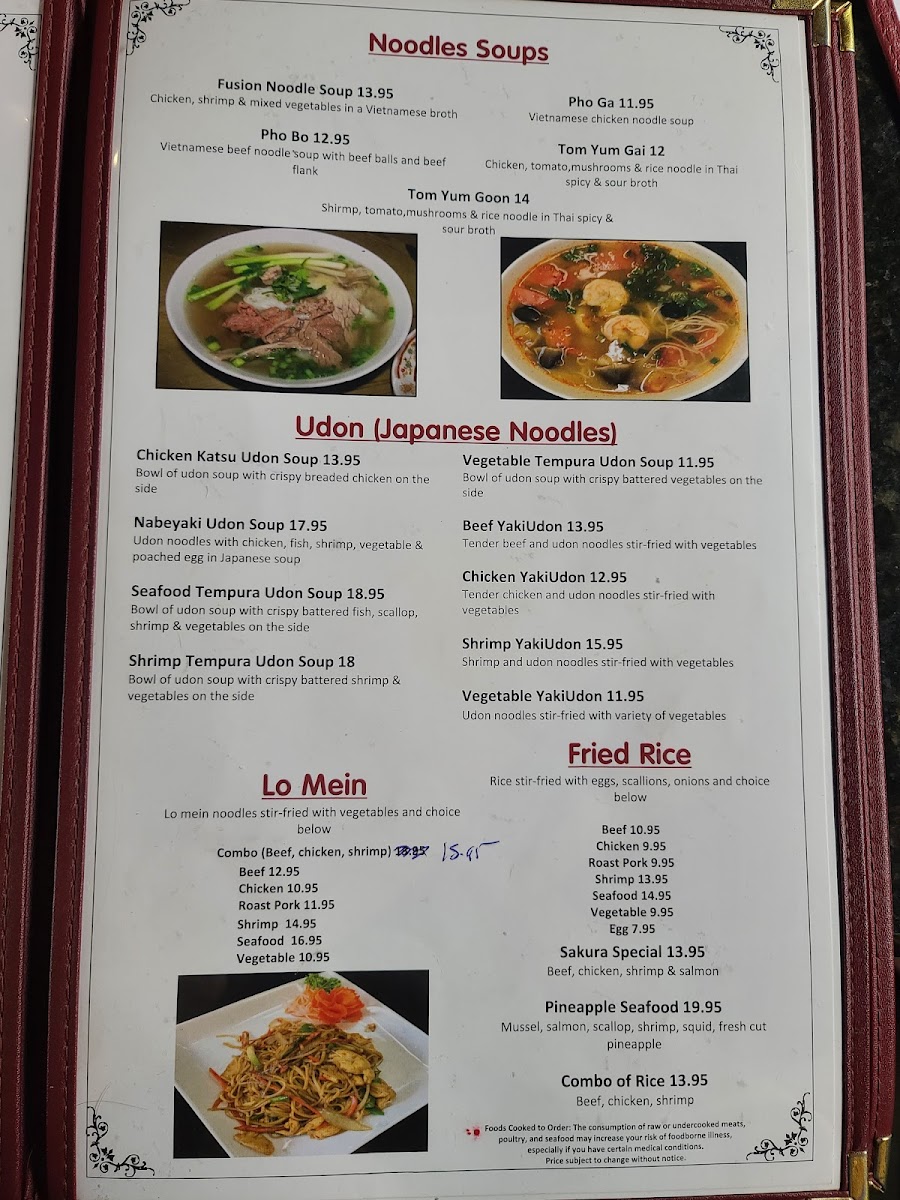 Noodles Soups
Fusion Noodle Soup 13.95
Chicken, shrimp & mixed vegetables in a Vietnamese broth
Pho Ga 11.95
Vietnamese chicken noodle soup
Pho Bo 12.95
Vietnamese beef noodle soup with beef balls and beef
flank
Tom Yum Gai 12
Chicken, tomato,mushrooms & rice noodle in Thai
spicy & sour broth
Tom Yum Goon 14
Shirmp, tomato,mushrooms & rice noodle in Thai spicy &
sour broth
Udon (Japanese Noodles)
Chicken Katsu Udon Soup 13.95
Bowl of udon soup with crispy breaded chicken on the
side
Nabeyaki Udon Soup 17.95
Udon noodles with chicken, fish, shrimp, vegetable &
poached egg in Japanese soup
Seafood Tempura Udon Soup 18.95
Bowl of udon soup with crispy battered fish, scallop,
shrimp & vegetables on the side
Shrimp Tempura Udon Soup 18
Bowl of udon soup with crispy battered shrimp &
vegetables on the side
Vegetable Tempura Udon Soup 11.95
Bowl of udon soup with crispy battered vegetables on the
side
Beef YakiUdon 13.95
Tender beef and udon noodles stir-fried with vegetables
Chicken YakiUdon 12.95
Tender chicken and udon noodles stir-fried with
vegetables
Shrimp YakiUdon 15.95
Shrimp and udon noodles stir-fried with vegetables
Vegetable YakiUdon 11.95
Udon noodles stir-fried with variety of vegetables
Lo Mein
Lo mein noodles stir-fried with vegetables and choice
below
Combo (Beef, chicken, shrimp) 15.95
Beef 12.95
Chicken 10.95
Roast Pork 11.95
Shrimp 14.95
Seafood 16.95
Vegetable 10.95
Fried Rice
Rice stir-fried with eggs, scallions, onions and choice
below
Beef 10.95
Chicken 9.95
Roast Pork 9.95
Shrimp 13.95
Seafood 14.95
Vegetable 9.95
Egg 7.95
Sakura Special 13.95
Beef, chicken, shrimp & salmon
Pineapple Seafood 19.95
Mussel, salmon, scallop, shrimp, squid, fresh cut
pineapple
Combo of Rice 13.95
Beef, chicken, shrimp
Foods Cooked to Order: The consumption of raw or undercooked meats,
poultry, and seafood may increase your risk of foodborne illness,
especially if you have certain medical conditions.
Price subject to change without notice.